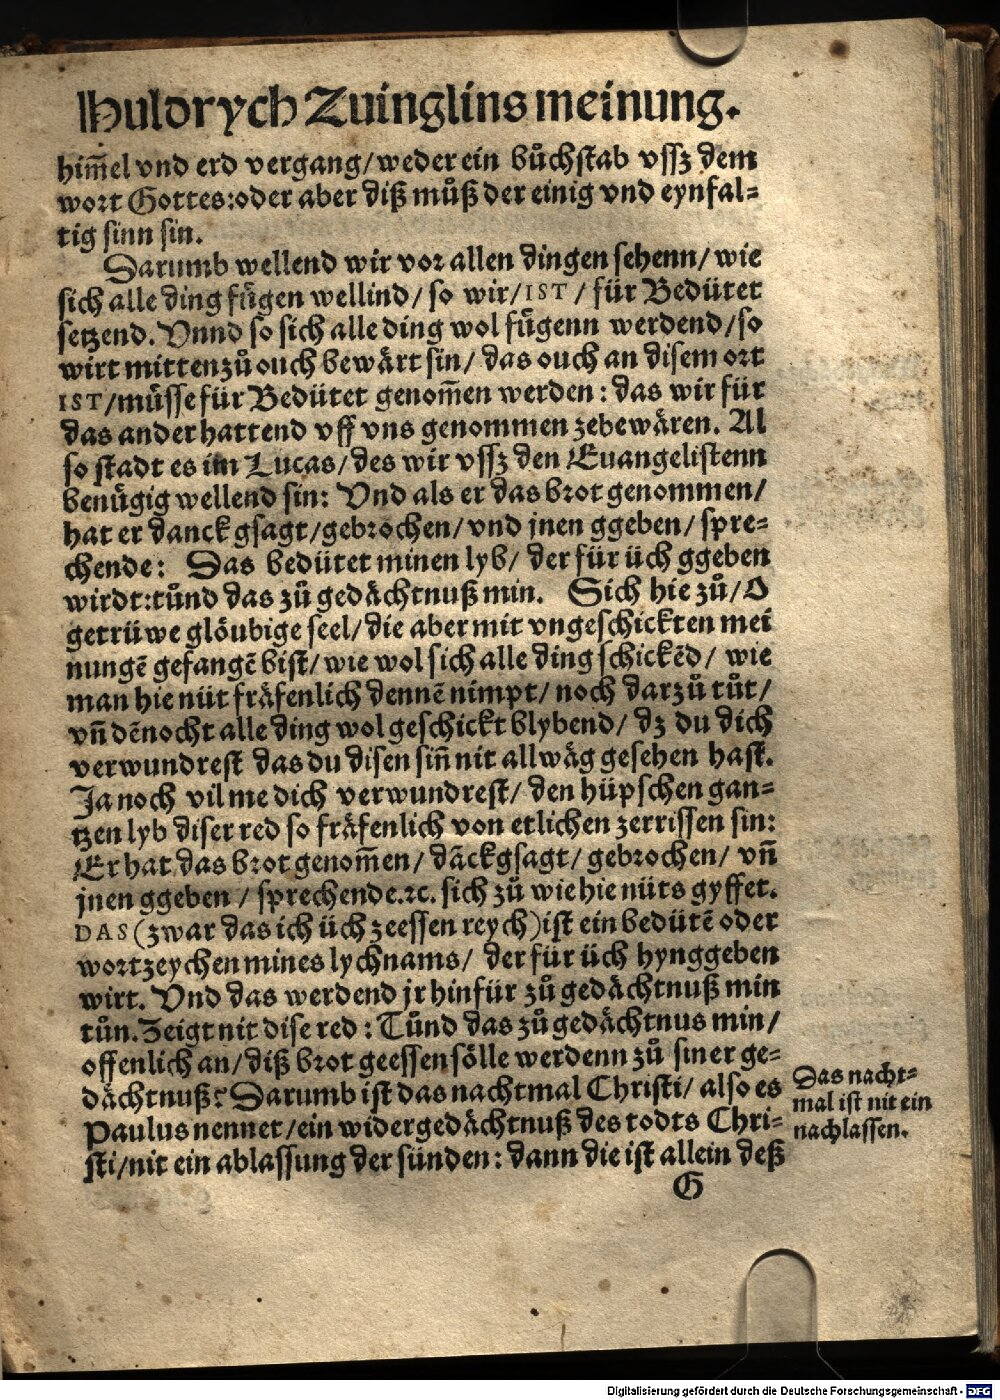 Huldrych Zuinglins meinung.
him̄el vnd erd vergang/ weder ein bůchstab vssz dem
wort Gottes: oder aber diß můß der einig vnd eynfal=
tig sinn sin.
Darumb wellend wir vor allen dingen sehenn/ wie
sich alle ding fügen wellind/ so wir/ IST / für Bedütet
setzend. Vnnd so sich alle ding wol fügenn werdend/ so
wirt mittenzů ouch bewärt sin/ das ouch an disem ort
IST/ müsse für Bedütet genom̄en werden: das wir für
das ander hattend vff vns genommen zebewären. Al
so stadt es im Lucas/ des wir vssz den Euangelistenn
benügig wellend sin: Vnd als er das brot genommen/
hat er danck gsagt/ gebrochen/ vnd jnen ggeben/ spre=
chende: Das bedütet minen lyb/ der für üch ggeben
wirdt: tůnd das zů gedächtnuß min. Sich hie zů/ O
getrüwe glöubige seel/ die aber mit vngeschickten mei
nungē gefangē bist/ wie wol sich alle ding schickēd/ wie
man hie nüt fräfenlich dennē nimpt/ noch darzů tůt/
vn̄ dēnocht alle ding wol geschickt blybend/ dz du dich
verwundrest das du disen sin̄ nit allwäg gesehen hast.
Ja noch vil me dich verwundrest/ den hüpschen gan=
tzen lyb diser red so fräfenlich von etlichen zerrissen sin:
Er hat das brot genom̄en/ dāckgsagt/ gebrochen/ vn̄
jnen ggeben / sprechende.ꝛc. sich zů wie hie nüts gyffet.
DAS (zwar das ich üch zeessen reych) ist ein bedütē oder
wortzeychen mines lychnams/ der für üch hynggeben
wirt. Vnd das werdend jr hinfür zů gedächtnuß min
tůn. Zeigt nit dise red: Tůnd das zů gedächtnus min/
offenlich an/ diß brot geessen sölle werdenn zů siner ge=
dächtnuß? Darumb ist das nachtmal Christi/ also es
Paulus nennet/ ein widergedächtnuß des todts Chri=
sti/ nit ein ablassung der sünden: dann die ist allein deß
Das nacht=
mal ist nit ein
nachlassen.
G
Digitalisierung gefördert durch die Deutsche Forschungsgemeinschaft - DFG